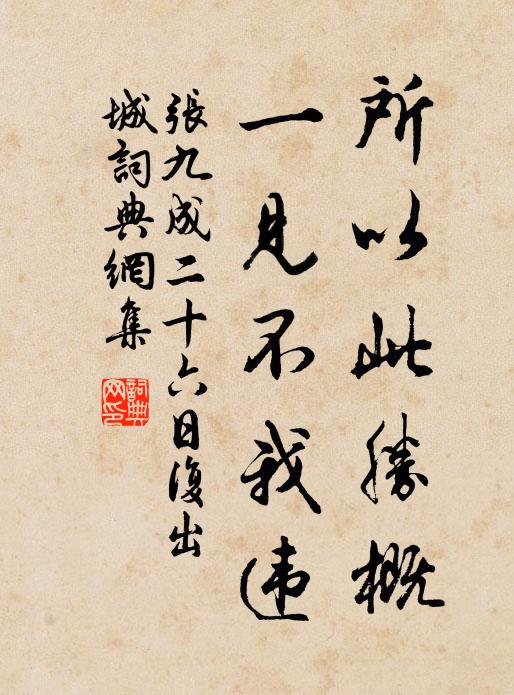 所以此勝概
一見不我违
張九成二十六日復出
城詞典網集
詞典
网印